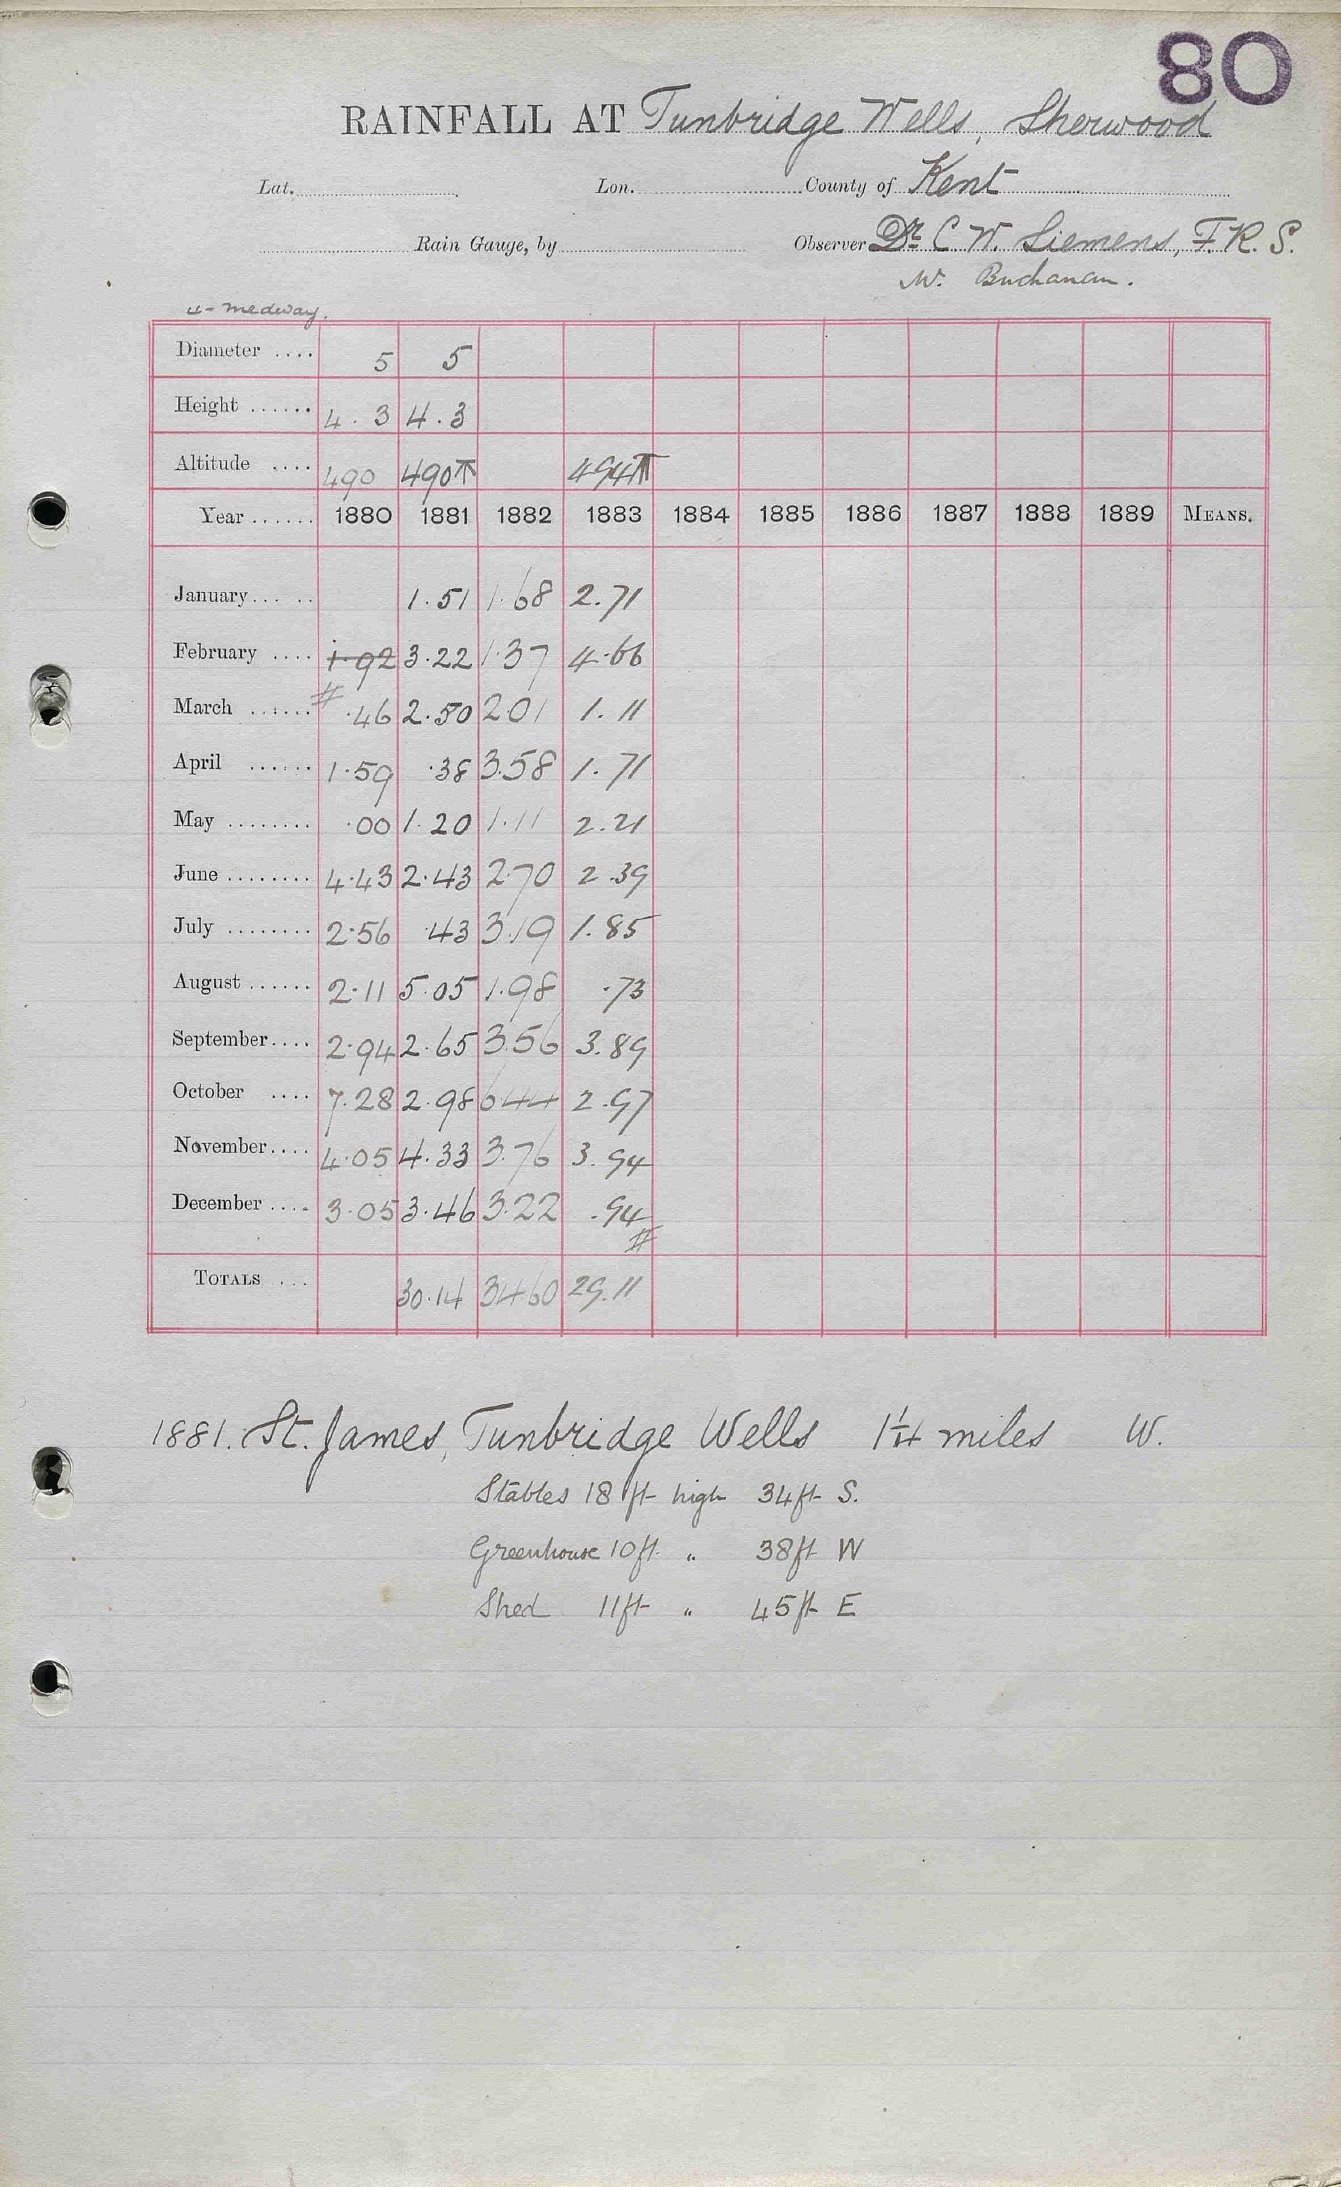 80
RAINFALL AT Tunbridge Wells, Sherwood
Lat. Lon. County of Kent
Rain Gauge, by Observer Dr. C. W. Siemens, F.R.S.
W. Buchanan.
4- Medway.
Diameter .... 5 5
Height ...... 4.3 4.3
Altitude .... 490 490 494
Year ...... 1880 1881 1882 1883 1884 1885 1886 1887 1888 1889 MEANS.
January ... .. 1.51 1.68 2.71
February .... 1.92 3.22 1.37 4.66
March ...... # .46 2.50 2.01 1.11
April ...... 1.59 .38 3.58 1.71
May ........ .00 1.20 1.11 2.21
June ........ 4.43 2.43 2.70 2.39
July ........ 2.56 .43 3.19 1.85
August ...... 2.11 5.05 1.98 .73
September .... 2.94 2.65 3.56 3.89
October .... 7.28 2.98 6.44 2.97
November .... 4.05 4.33 3.76 3.94
December .... 3.05 3.46 3.22 .94
#
TOTALS ... 30.14 34.60 29.11
1881. St. James, Tunbridge Wells 1¼ miles W.
Stables 18 ft high 34ft S.
Greenhouse 10ft. " 38ft W
Shed 11ft " 45ft E